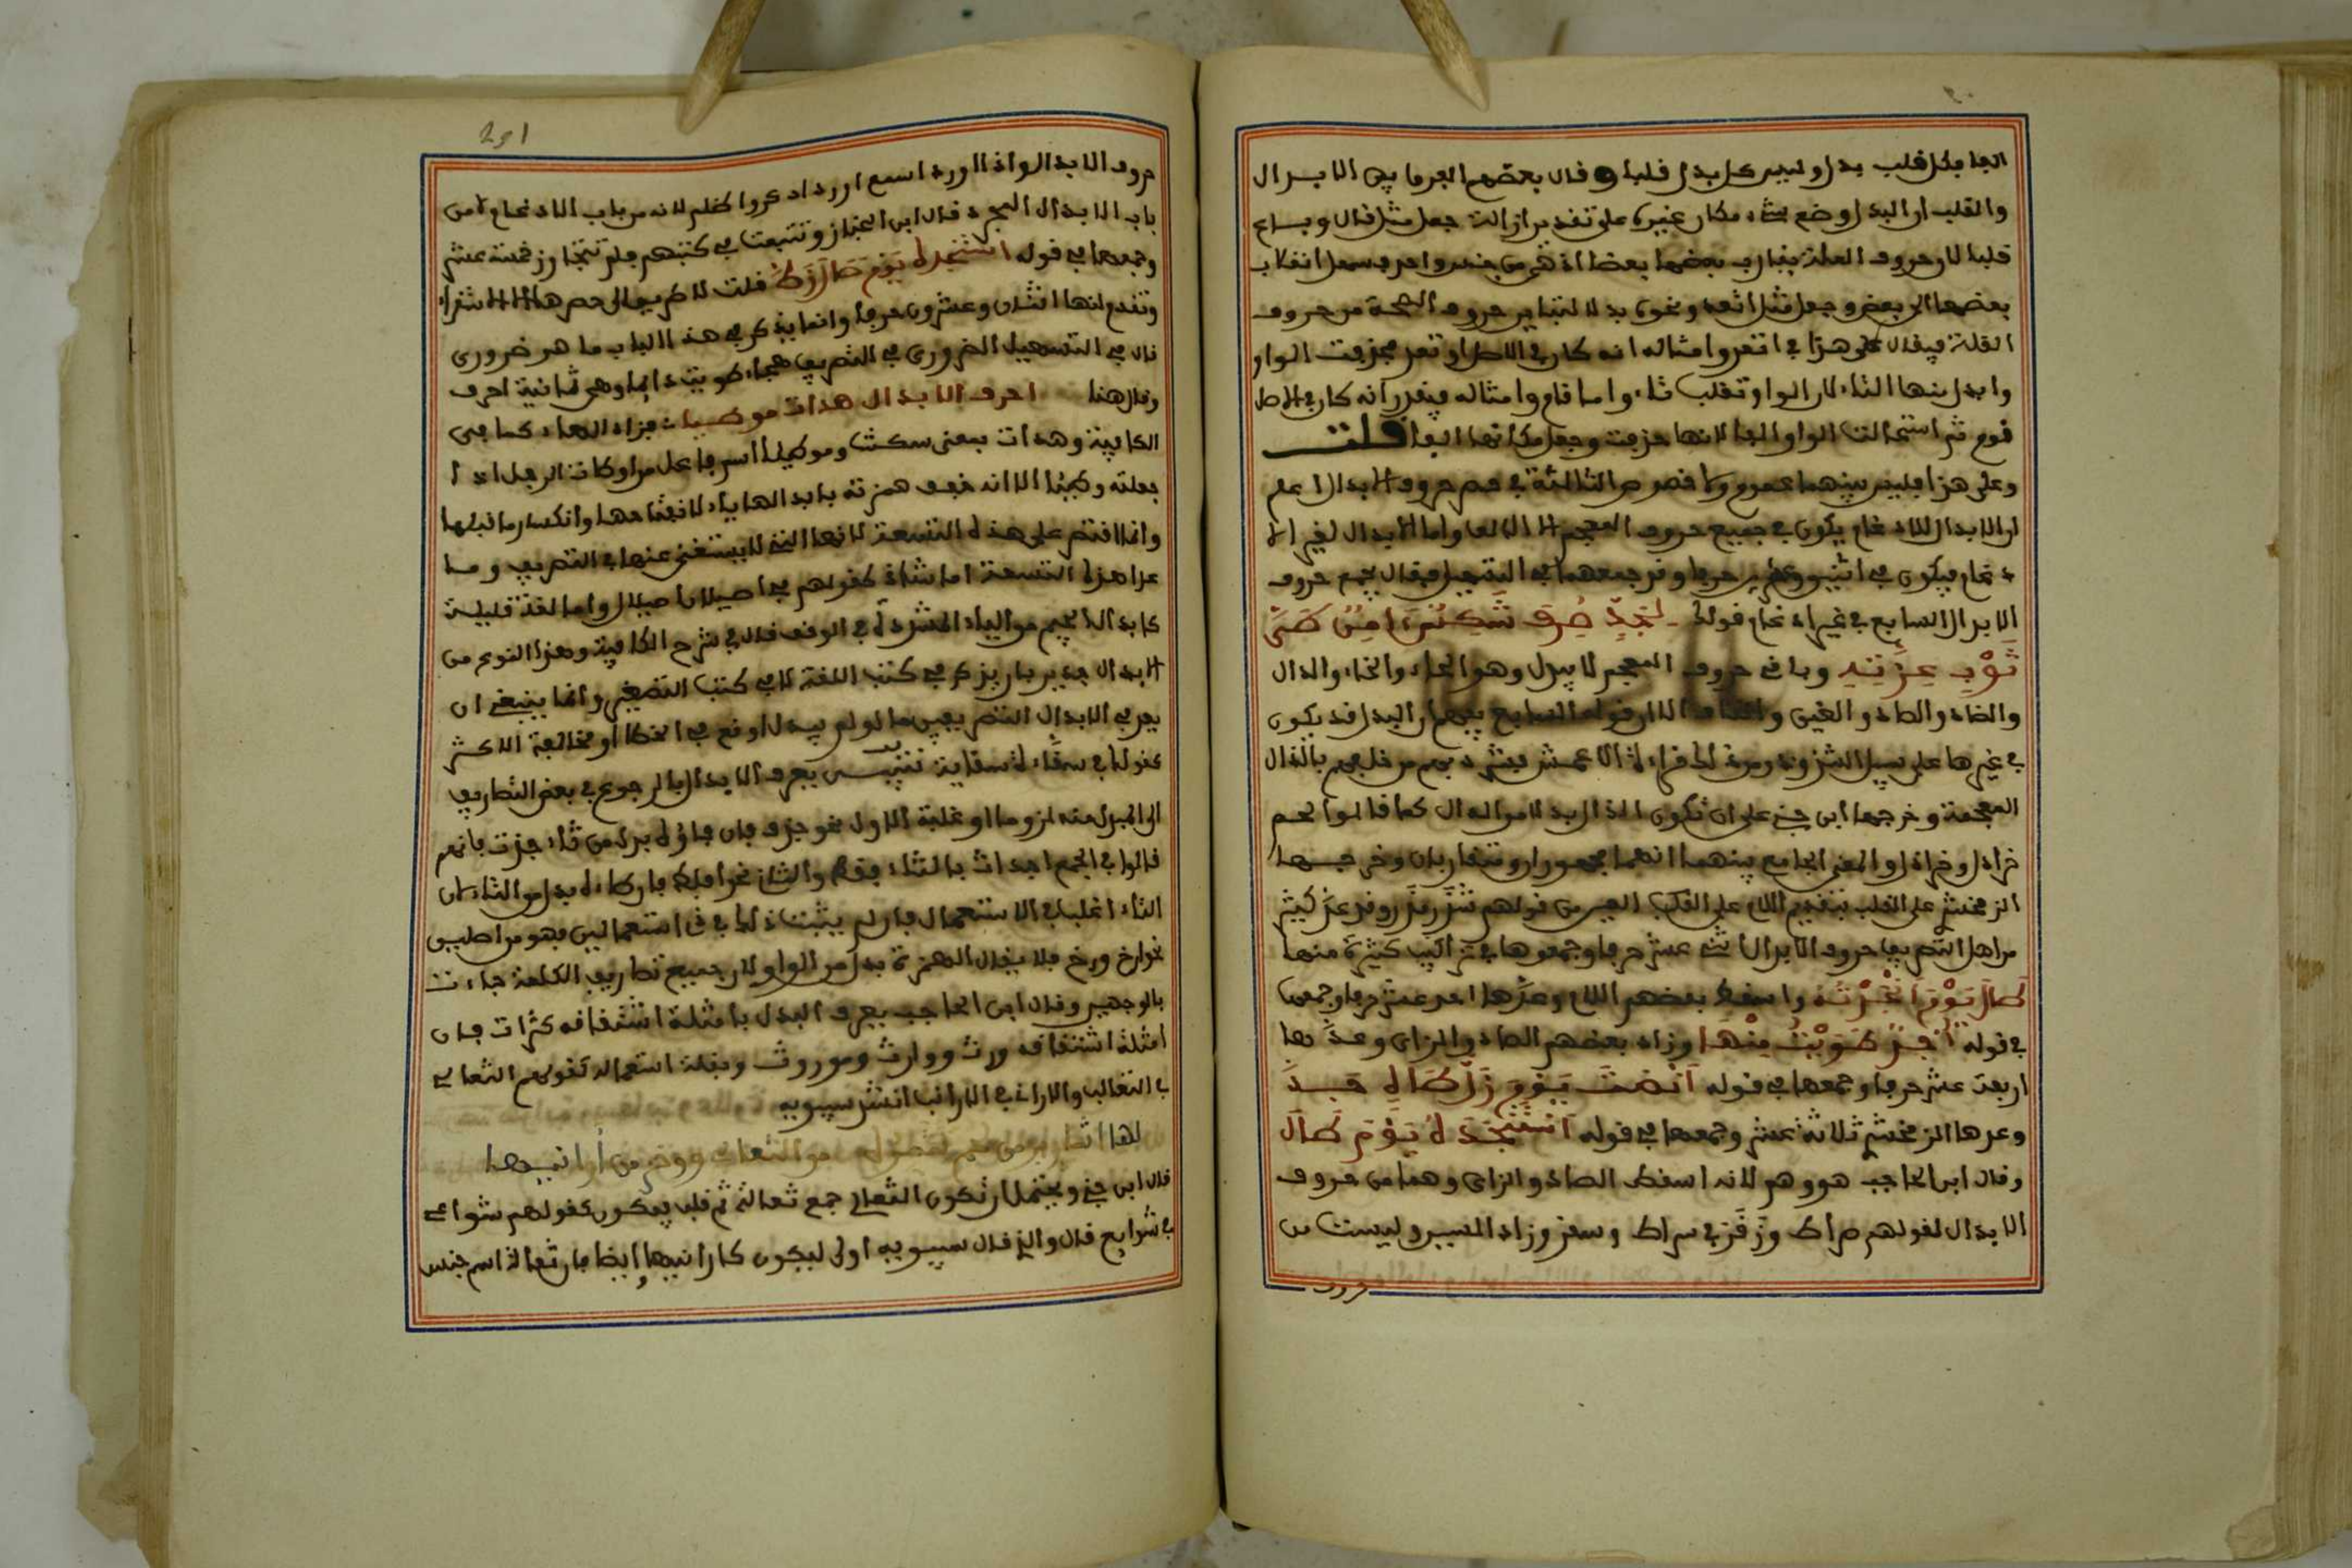 الفا فكل قلب بدل وليس كل بدل قلبا وقال بعضهم الفرق بين الابدال
والقلب ان البدل وضع شيء مكان غيره على تقدير ازالة جعل مثل قال وباع
قلبا لان حروف العلة يقارب بعضها بعضا اذ هي من جنس واحد فسهل انقلاب
بعضها الى بعض وجعل مثل اتعد ونحوه بدلا لتباين حروف الصحة من حروف
العلة فيقال على هذا في اتعد وامثاله انه كان في الاصل اوتعد فحذفت الواو
وابدل منها التاء لان الواو تقلب تاء واما قام وامثاله فيقدر انه كان في الاصل
قوم ثم استحالت الواو الفا لانها حذفت وجعل مكانها الفا قلت
وعلى هذا فليس بينهما عموم ولا خصوص الثالثة في حصر حروف الابدال اعلم
ان الابدال للادغام يكون في جميع حروف المعجم الا الالف واما الابدال لغير الا
دغام فيكون في اثنين وعشرين حرفا وقد جمعها في التسهيل فقال يجمع حروف
الابدال الشايع في غير ادغام قولك لجد صرف شكس امن طي
ثوب عزته وباقي حروف المعجم لا يبدل وهو الحاء والخاء والذال
والضاد والظاء والغين والقاف الا ان قوله الشايع يفهم ان البدل قد يكون
في غيرها على سبيل الشذوذ ومن ذلك قراءة الاعمش فشرذ بهم من خلفهم بالذال
المعجمة وخرجها ابن جني على ان تكون الذال بدلا من الدال كما قالوا لحم
خرادل وخراذل والمعنى الجامع بينهما انهما مجهوران ومتقاربان وخرجها
الزمخشري على القلب بتقديم اللام على العين من قولهم شذر مذر وقد عد كثير
من اهل التصريف حروف الابدال اثني عشر حرفا وجمعوها في تراكيب كثيرة منها
طال يوم انجدته واسقط بعضهم اللام وعدها احد عشر حرفا وجمعها
في قوله اجد طويت منها وزاد بعضهم الصاد والزاي وعدها
اربعة عشر حرفا وجمعها في قوله انصت يوم زل طاه جد
وعدها الزمخشري ثلاثة عشر وجمعها في قوله استنجده يوم طال
وقال ابن الحاجب هو وهم لانه اسقط الصاد والزاي وهما من حروف
الابدال لقولهم صراط وزقر في سراط وسقر وزاد السين وليست من
حروف
201
حروف الابدال وان اورد اسمع اورد اذكروا ظلم لانه من باب الادغام لا من
باب الابدال المجرد قال ابن الخباز وتتبعت في كتبهم فلم تتجاوز خمسة عشر
وجمعها في قوله استنجده يوم صال زط قلت لا طريق الى حصرها الا الاستقراء
وتقدم انها اثنان وعشرون حرفا وانما يذكر في هذا الباب ما هو ضروري
قال في التسهيل الضروري في التصريف هجاء طويت دائما وهي ثمانية احرف
وقال هنا احرف الابدال هدات موطيا فزاد الهاء كما في
الكافية وهدات بمعنى سكنت وموطيا اسم فاعل من اوطات الرجل اذا
جعلته وطيئا الا انه خفف همزته بابدالها ياء لانفتاحها وانكسار ما قبلها
وانما اقتصر على هذه التسعة لانها التي لا يستغنى عنها في التصريف وما
عدا هذه التسعة اما شاذ كقولهم في اصيلان اصيلال واما لغة قليلة
كابدال الجيم من الياء المشددة في الوقف قال في شرح الكافية وهذا النوع من
الابدال جدير بان يذكر في كتب اللغة لا في كتب التصريف وانما ينبغي ان
يعد في الابدال التصريفي ما لو لم يبدل اوقع في الخطا او مخالفة الاكثر
كقولك في سقاءة سقاية تنبيه يعرف الابدال بالرجوع في بعض التصاريف
الى المبدل منه لزوما او غلبة الاول نحو جدف فان فاؤه بدل من ثاء جدث فانهم
قالوا في الجمع اجداث بالثاء فقط والثاني نحو افلط فان طاءه بدل من التاء لان
التاء اغلب في الاستعمال فان لم يثبت ذلك في استعمالين فهو من اصلين
نحو ارخ وورخ فلا يقال الهمزة بدل من الواو لان جميع تصاريف الكلمة جاءت
بالوجهين وقال ابن الحاجب يعرف البدل بامثلة اشتقاقه كتراث فان
امثلة اشتقاقه ورث ووارث وموروث وبقلة استعماله كقولهم الثعالي
في الثعالب والاراني في الارانب انشد سيبويه
لها اشارير من لحم تتمره من الثعالي ووخز من ارانيها
قال ابن جني ويحتمل ان تكون الثعالي جمع ثعالة ثم قلب فيكون كقولهم شواعي
في شوايع قال والذي قال سيبويه اولى ليكون كارانيها وايضا فان ثعالة اسم جنس